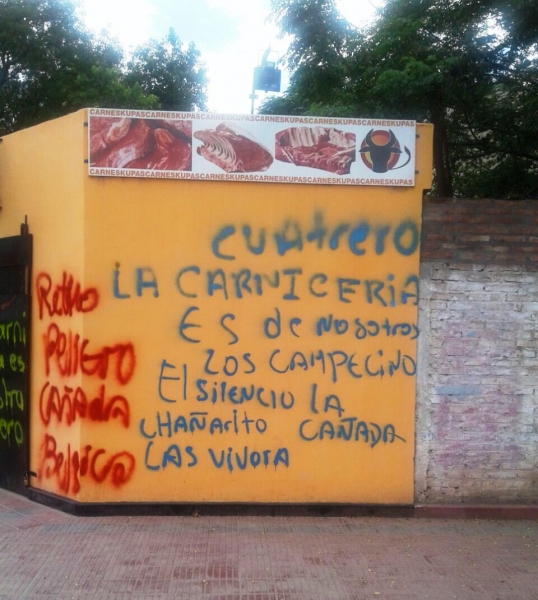 CARNESKUPASCARNESKUPASCARNESKUPASCARNESKUPASCARNESKUPAS
CARNESKUPASCARNESKUPASCARNESKUPASCARNESKUPASCARNESKUPAS
cuatrero
LA CARNICERIA
ES de NOSOTROS
LOS CAMPECINO
El SILENCIO LA
CHAÑARITO CAÑADA
LAS VIVORA
PELIGRO
CAÑADA
Belgica